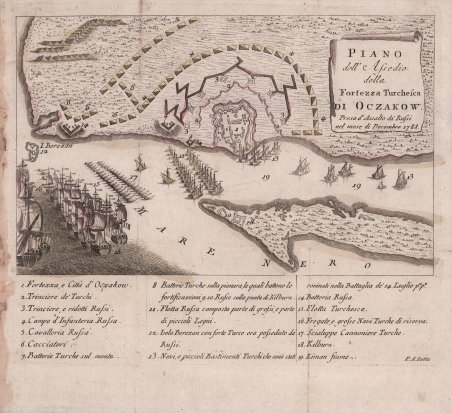 PIANO
dell' Assedio
della
Fortezza Turchesca
DI OCZAKOW.
Presa d'Assalto da' Russi
nel mese di Decembre 1788.
I. Berezan
12
17
19
19
MARE NERO
1. Fortezza, e Città d'Oczakow.
2. Trinciere de' Turchi
3. Trinciere, e ridotti Russi.
4. Campo d'Infanteria Russa.
5. Cavalleria Russa.
6. Cacciatori
7. Batterie Turche sul monte.
8 Batterie Turche sulla pianura, le quali battono le
fortificazioni 9.10 Russe sulla punta di Kilburn.
11. Flotta Russa composta parte di grossi, e parte
di piccioli Legni.
12. Isola Berezan con forte Turco ora posseduto da
Russi.
13 Navi, e piccioli Bastimenti Turcheschi stati
rovinati nella Battaglia de' 24 Luglio
14 Batteria Russa.
15. Flotta Turchesca.
16. Fregate, e grosse Navi Turche di riserva.
17 Scialuppe Cannoniere Turche.
18. Kilburn.
19. Liman fiume.
P. A. Zatta